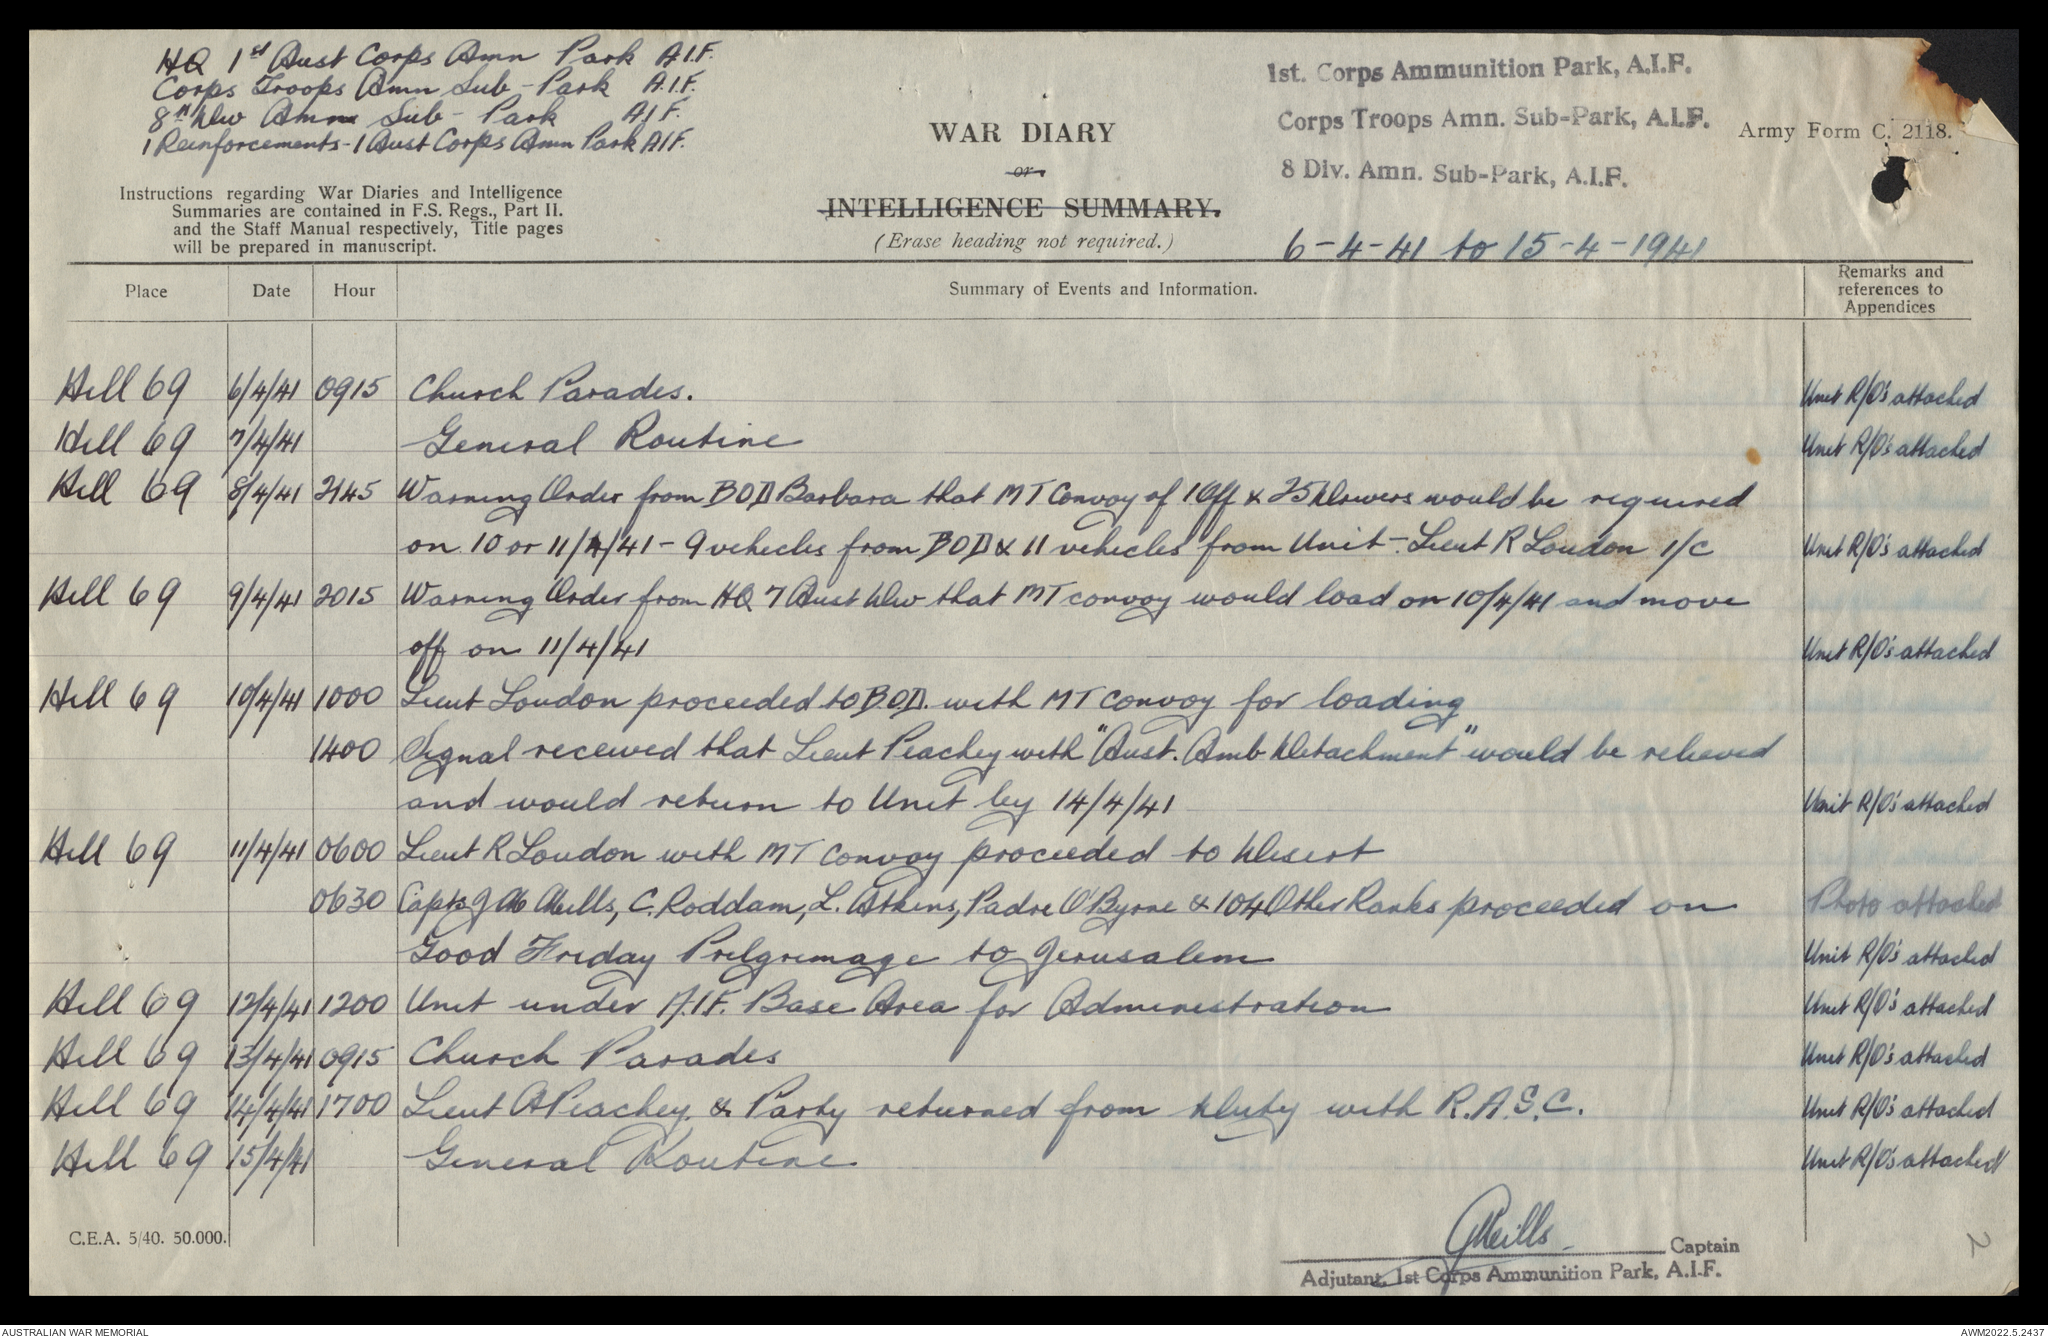 HQ 1st Aust Corps Amn Park A.I.F.
Corps Troops Amn Sub-Park A.I.F.
8th Div Amn Sub-Park A.I.F.
1 Reinforcements - 1 Aust Corps Amn Park AIF.
1st. Corps Ammunition Park, A.I.F.
Corps Troops Amn. Sub-Park, A.I.F.
8 Div. Amn. Sub-Park, A.I.F.
Army Form C. 2118.
WAR DIARY
or
INTELLIGENCE SUMMARY.
(Erase heading not required.)
6-4-41 to 15-4-1941
Instructions regarding War Diaries and Intelligence
Summaries are contained in F.S. Regs., Part II.
and the Staff Manual respectively, Title pages
will be prepared in manuscript.
Place Date Hour Summary of Events and Information. Remarks and
references to
Appendices
Hill 69 6/4/41 0915 Church Parades. Unit R/O's attached
Hill 69 7/4/41 General Routine Unit R/O's attached
Hill 69 8/4/41 2145 Warning Order from BOD Barbara that MT Convoy of 1 Off & 25 Drivers would be required
on 10 or 11/4/41 - 9 vehicles from BOD & 11 vehicles from Unit - Lieut R Loudon I/C Unit R/O's attached
Hill 69 9/4/41 2015 Warning Order from HQ 7 Aust Div that MT convoy would load on 10/4/41 and move
off on 11/4/41 Unit R/O's attached
Hill 69 10/4/41 1000 Lieut Loudon proceeded to B.O.D. with MT Convoy for loading
1400 Signal received that Lieut Peachey with "Aust. Amb Detachment" would be relieved
and would return to Unit by 14/4/41 Unit R/O's attached
Hill 69 11/4/41 0600 Lieut R Loudon with MT Convoy proceeded to Desert
0630 Capts J Mills, C. Roddam, L. Atkins, Padre O'Byrne & 104 Other Ranks proceeded on Photo attached
Good Friday Pilgrimage to Jerusalem Unit R/O's attached
Hill 69 12/4/41 1200 Unit under A.I.F. Base Area for Administration Unit R/O's attached
Hill 69 13/4/41 0915 Church Parades Unit R/O's attached
Hill 69 14/4/41 1700 Lieut A Peachey & Party returned from duty with R.A.S.C. Unit R/O's attached
Hill 69 15/4/41 General Routine Unit R/O's attached
C.E.A. 5/40. 50.000.
Captain
Adjutant, 1st Corps Ammunition Park, A.I.F.
2
AUSTRALIAN WAR MEMORIAL
AWM2022.5.2437